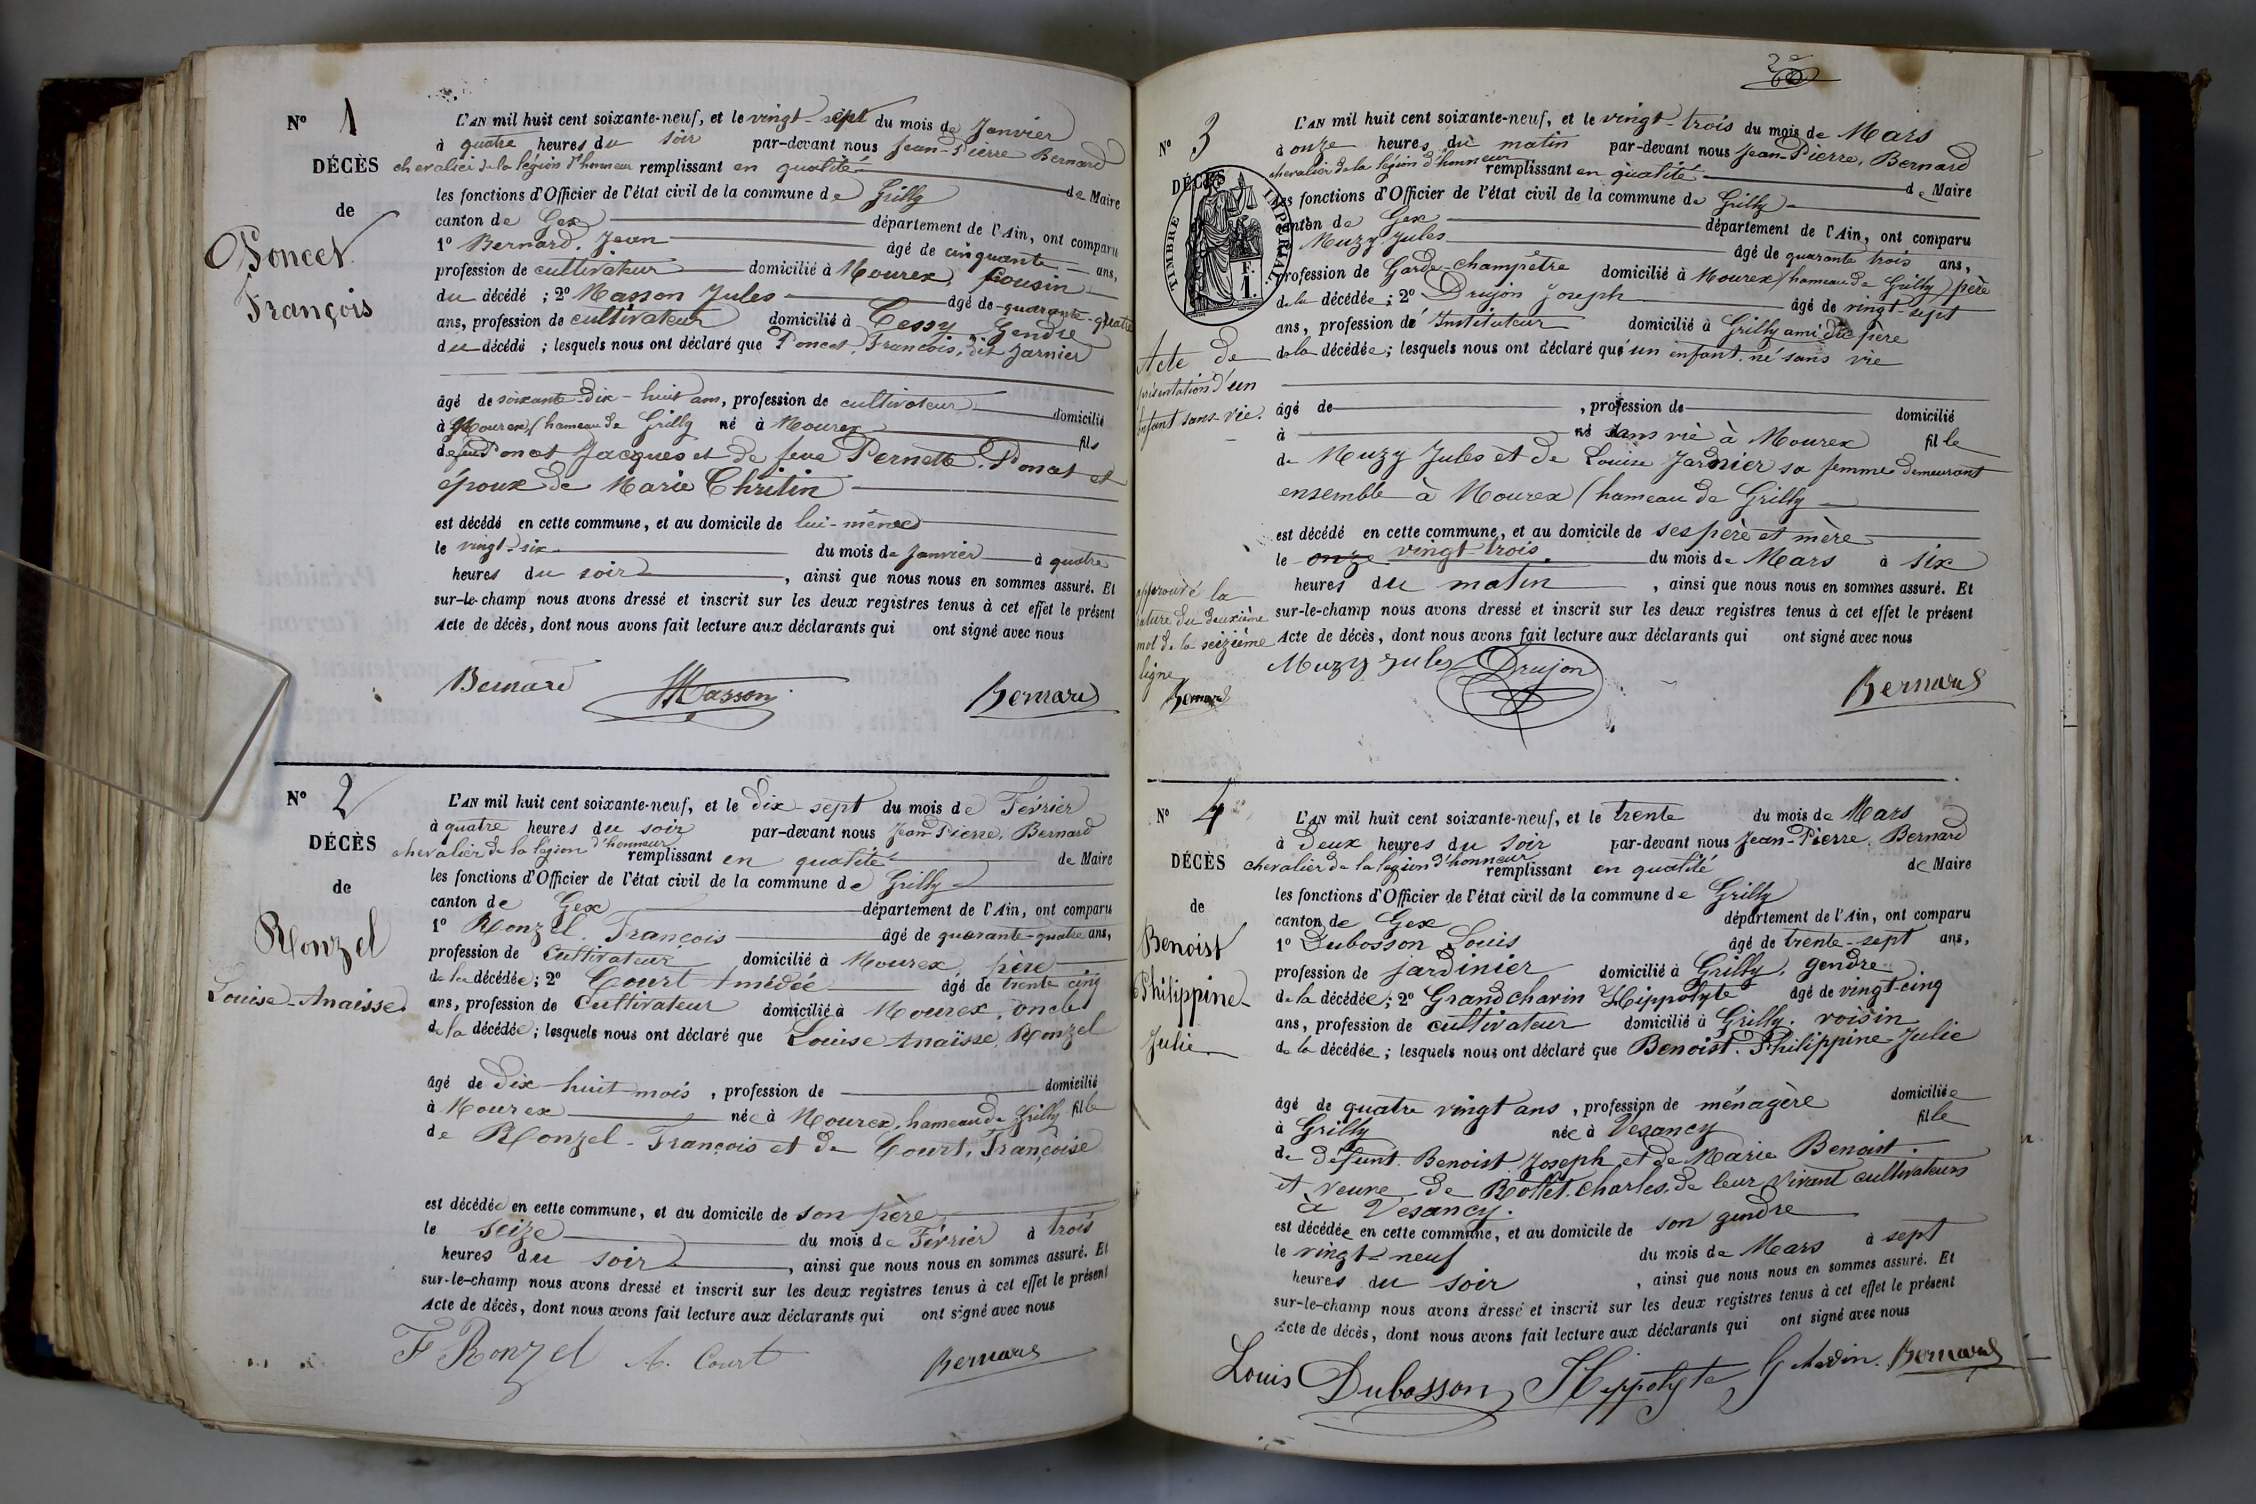 N° 1
DÉCÈS
de
Poncet
François
L'AN mil huit cent soixante-neuf, et le vingt-sept du mois de Janvier
à quatre heures du soir par-devant nous Jean-Pierre Bernard
chevalier de la légion d'honneur remplissant en qualité de Maire
les fonctions d'Officier de l'état civil de la commune de Grilly
canton de Gex département de l'Ain, ont comparu
1° Bernard, Jean âgé de cinquante ans,
profession de cultivateur domicilié à Mourex, Cousin
du décédé ; 2° Masson Jules âgé de quarante-quatre
ans, profession de cultivateur domicilié à Cessy, Gendre
du décédé ; lesquels nous ont déclaré que Poncet, François, dit Jarnier
âgé de soixante-dix-huit ans, profession de cultivateur domicilié
à Mourex, (hameau de Grilly né à Mourex fils
de feu Poncet Jacques et de feue Pernette Poncet et
époux de Marie Chritin
est décédé en cette commune, et au domicile de lui-même
le vingt-six du mois de Janvier à quatre
heures du soir, ainsi que nous nous en sommes assuré. Et
sur-le-champ nous avons dressé et inscrit sur les deux registres tenus à cet effet le présent
Acte de décès, dont nous avons fait lecture aux déclarants qui ont signé avec nous
Bernard Masson Bernard
N° 2
DÉCÈS
de
Ronzel
Louise-Anaisse
L'AN mil huit cent soixante-neuf, et le dix-sept du mois de Février
à quatre heures du soir par-devant nous Jean-Pierre, Bernard
chevalier de la légion d'honneur remplissant en qualité de Maire
les fonctions d'Officier de l'état civil de la commune de Grilly
canton de Gex département de l'Ain, ont comparu
1° Ronzel, François âgé de quarante-quatre ans,
profession de Cultivateur domicilié à Mourex père
de la décédée ; 2° Court Amédée âgé de trente cinq
ans, profession de Cultivateur domicilié à Mourex, oncle
de la décédée ; lesquels nous ont déclaré que Louise Anaïsse, Ronzel
âgé de dix-huit mois, profession de domicilié
à Mourex née à Mourex, hameau de Grilly fille
de Ronzel-François et de Court, Françoise
est décédée en cette commune, et au domicile de son père
le seize du mois de Février à trois
heures du soir, ainsi que nous nous en sommes assuré. Et
sur-le-champ nous avons dressé et inscrit sur les deux registres tenus à cet effet le présent
Acte de décès, dont nous avons fait lecture aux déclarants qui ont signé avec nous
F Ronzel A. Court Bernard
N° 3
DÉCÈS
TIMBRE IMPERIAL
F.
1.
Acte de
présentation d'un
enfant sans-vie.
L'AN mil huit cent soixante-neuf, et le vingt-trois du mois de Mars
à onze heures du matin par-devant nous Jean-Pierre, Bernard
chevalier de la légion d'honneur remplissant en qualité de Maire
les fonctions d'Officier de l'état civil de la commune de Grilly
canton de Gex département de l'Ain, ont comparu
Muzy Jules âgé de quarante trois ans,
profession de Garde-champêtre domicilié à Mourex (hameau de Grilly) père
de la décédée ; 2° Drujon Joseph âgé de vingt-sept
ans, profession de Instituteur domicilié à Grilly ami du père
de la décédée ; lesquels nous ont déclaré qu'un enfant né sans vie
âgé de, profession de domicilié
à né sans vie à Mourex fille
de Muzy Jules et de Louise Jarnier sa femme demeurant
ensemble à Mourex (hameau de Grilly
est décédé en cette commune, et au domicile de ses père et mère
le onze vingt-trois du mois de Mars à six
heures du matin, ainsi que nous nous en sommes assuré. Et
sur-le-champ nous avons dressé et inscrit sur les deux registres tenus à cet effet le présent
Acte de décès, dont nous avons fait lecture aux déclarants qui ont signé avec nous
approuvé la
rature du deuxième
mot de la seizième
ligne
Bernard
Muzy Jules Drujon Bernard
N° 4
DÉCÈS
de
Benoist
Philippine-
Julie
L'AN mil huit cent soixante-neuf, et le trente du mois de Mars
à Deux heures du soir par-devant nous Jean-Pierre, Bernard
chevalier de la légion d'honneur remplissant en qualité de Maire
les fonctions d'Officier de l'état civil de la commune de Grilly
canton de Gex département de l'Ain, ont comparu
1° Dubosson Louis âgé de trente-sept ans,
profession de jardinier domicilié à Grilly, gendre
de la décédée ; 2° Grandchavin Hippolyte âgé de vingt-cinq
ans, profession de cultivateur domicilié à Grilly, voisin
de la décédée ; lesquels nous ont déclaré que Benoist, Philippine-Julie
âgé de quatre vingt ans, profession de ménagère domiciliée
à Grilly née à Vesancy fille
de défunt Benoist Joseph et de Marie Benoist
et veuve de Rollet Charles, de leur vivant cultivateurs
à Vesancy.
est décédée en cette commune, et au domicile de son gendre
le vingt-neuf du mois de Mars à sept
heures du soir, ainsi que nous nous en sommes assuré. Et
sur-le-champ nous avons dressé et inscrit sur les deux registres tenus à cet effet le présent
Acte de décès, dont nous avons fait lecture aux déclarants qui ont signé avec nous
Louis Dubosson Hippolyte Bernard